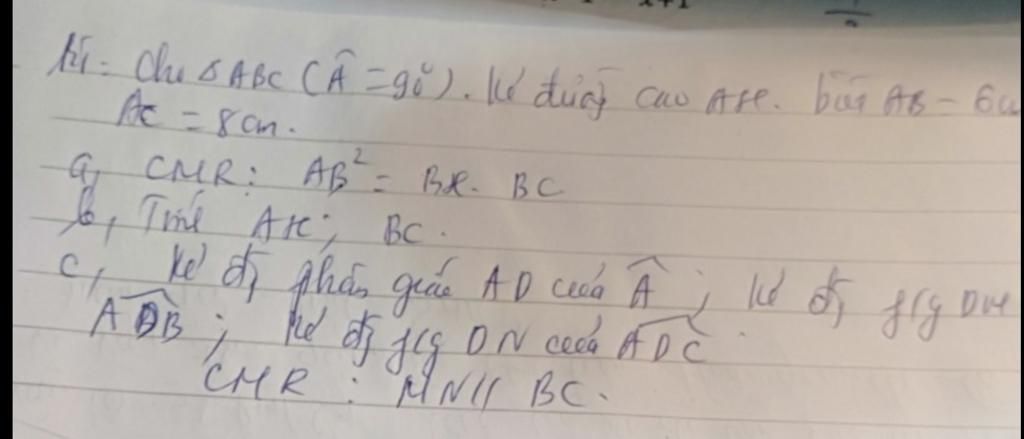 Cho Δ ABC (Â = 90°). Kẻ đường cao AH. biết AB = 6c
AC = 8cm.
a, CMR: AB² = BH. BC
b, Tính AH; BC.
c, Kẻ đg phân giác AD của Â; kẻ đg p/g DM
ADB; kẻ đg p/g DN của ADC
CMR: MN // BC.